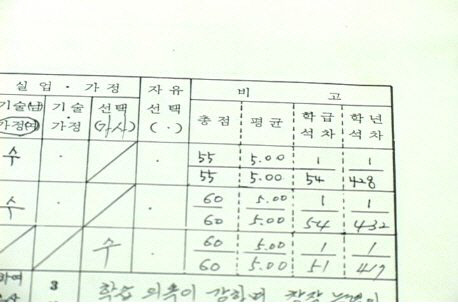 실업·가정 자유 비고
기술(남) 기술 선택 선택 총점 평균 학급 학년
가정(여) 가정 (가사) (·) 석차 석차
수 · · 55 5.00 1 1
55 5.00 54 428
수 · · 60 5.00 1 1
60 5.00 54 432
수 · 60 5.00 1 1
60 5.00 51 417
하여 3 학습 의욕이 강하며